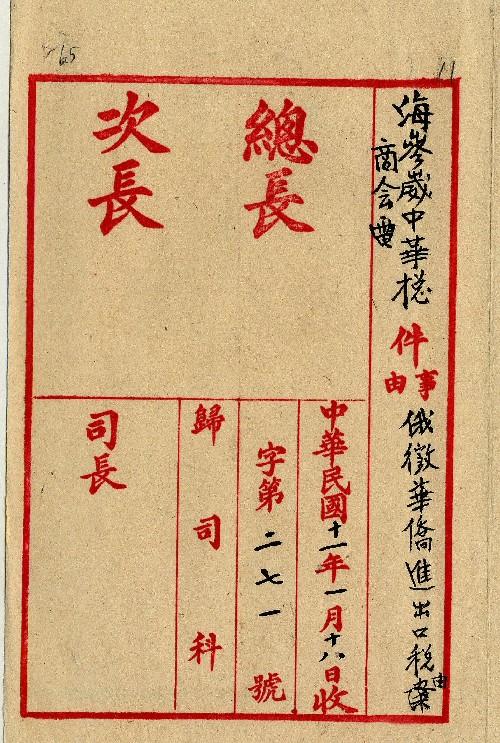 65
11
海參崴中華總
商会電
件
事由
俄徵華僑進出口稅案由
總長
次長
中華民國十一年一月十八日收
字第二七一號
歸司科
司長